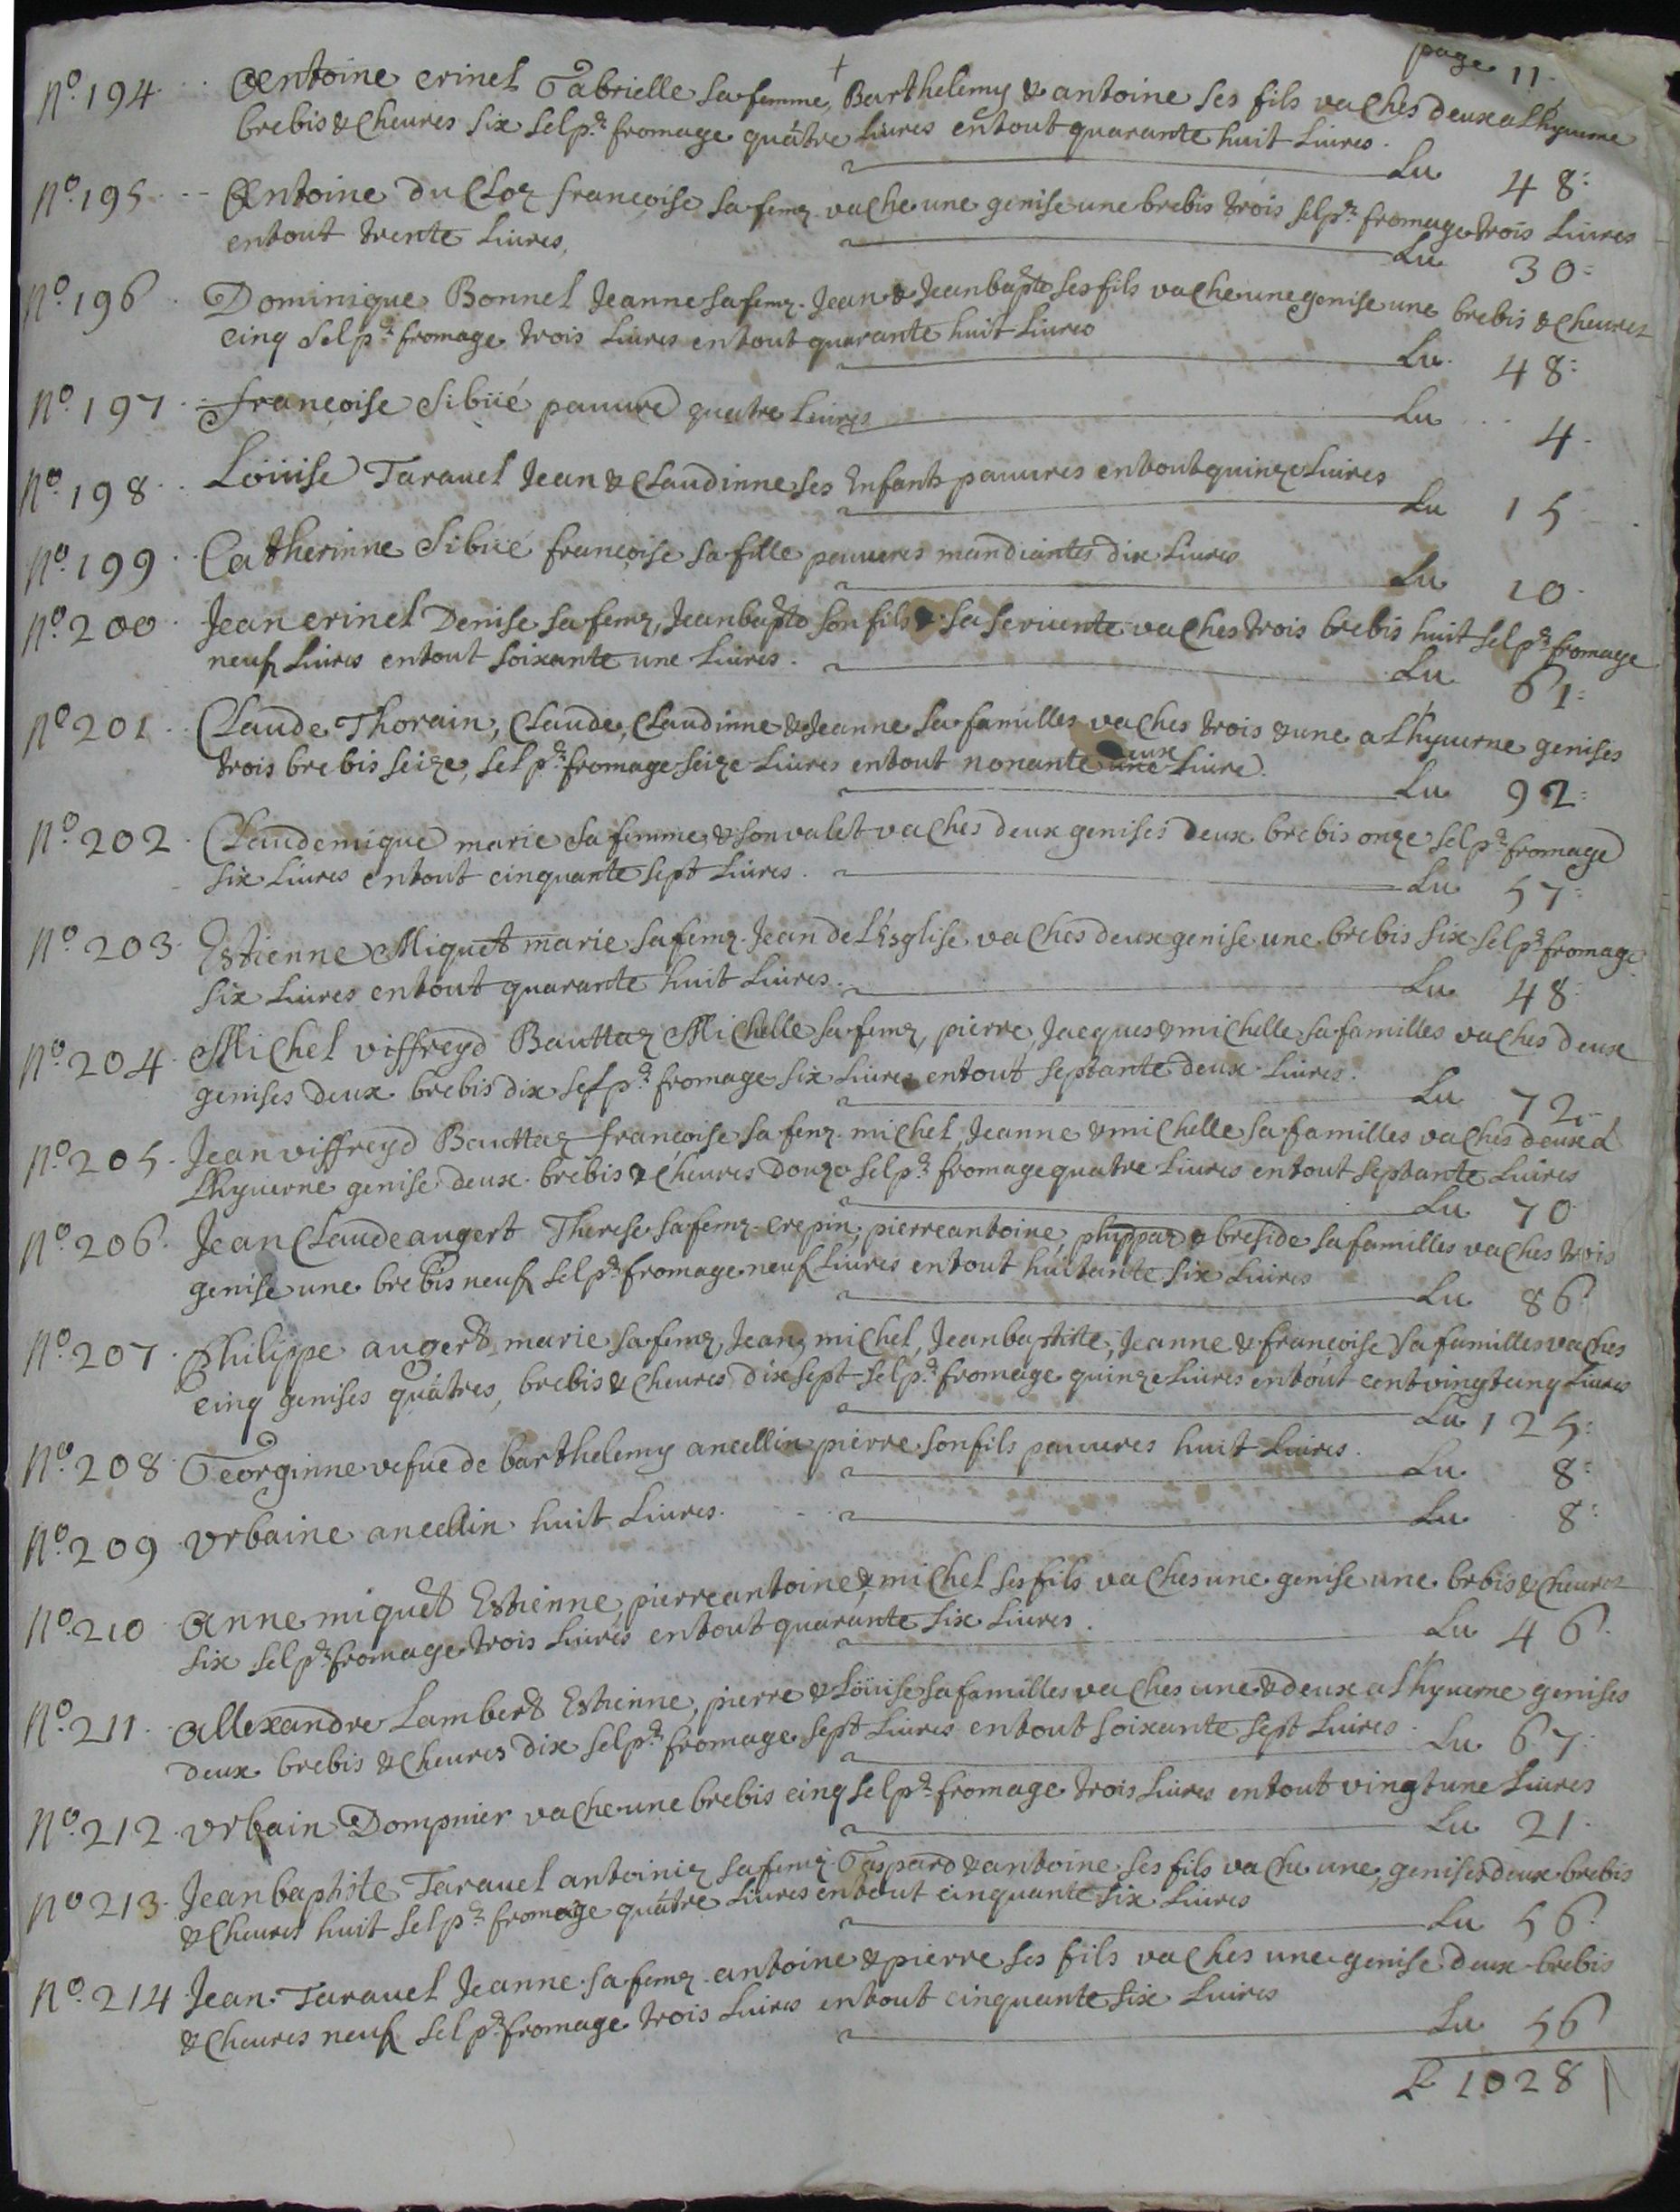 page 11
Nº 194 Antoine crinel Gabrielle sa femme, Barthelemy & antoine ses fils vaches deux a Lhyuerne
brebis & cheures six sel pr fromage quatre Liures entout quarante huit Liures. Lu 48
Nº 195 Antoine du Cloz francoise sa femz vache une genise une brebis trois sel pr fromage trois Liures
entout trente Liures, Lu 30
Nº 196 Dominique Bonnel Jeanne sa femz Jean & Jeanbapte ses fils vache une genise une brebis & cheures
cinq Sel pr fromage trois Liures entout quarante huit Liures Lu 48
Nº 197 francoise Sibüé pauure quatre Liures Lu 4
Nº 198 Loüise Tarauel Jean & Claudinne ses Enfants pauures entout quinze Liures Lu 15
Nº 199 Catherinne Sibüé francoise sa fille pauures mandiantes dix Liures Lu 10
Nº 200 Jean crinel Denise sa femz, Jeanbapte son fils & sa seruente vaches trois brebis huit sel pr fromage
neuf Liures entout soixante une Liures. Lu 61
Nº 201 Claude Thorain, Claude, Claudinne & Jeanne sa familles vaches trois & une a Lhyuerne genises
trois brebis seize, sel pr fromage seize Liures entout nonante une deux Liure. Lu 92
Nº 202 Claude mique marie sa femme & son valet vaches deux genises deux brebis onze sel pr fromage
six Liures entout cinquante sept Liures. Lu 57
Nº 203 Estienne Miquet marie sa femz Jean de L'Esglise vaches deux genise une brebis six sel pr fromage
six Liures entout quarante huit Liures. Lu 48
Nº 204 Michel viffreyd Bauttaz Michelle sa femz, pierre, Jacques & michelle sa familles vaches deux
genises deux brebis dix sel pr fromage six Liures entout septante deux Liures. Lu 72
Nº 205 Jean viffreyd Bauttaz francoise sa femz michel, Jeanne & michelle sa familles vaches deux a
Lhyuerne genise deux brebis & cheures douze sel pr fromage quatre Liures entout septante Liures
Lu 70
Nº 206 Jean Claude augert Therese sa femz crepin, pierre antoine, & breside sa familles vaches trois
genise une brebis neuf sel pr fromage neuf Liures entout huitante six Liures Lu 86
Nº 207 Philippe augert marie sa femz, Jean, michel, Jeanbaptiste, Jeanne & francoise sa familles vaches
cinq genises quatres, brebis & cheures dix sept sel pr fromage quinze Liures entout cent vingt cinq Liures
Lu 125
Nº 208 Georginne vefue de barthelemy ancellin pierre son fils pauures huit Liures. Lu 8
Nº 209 Vrbaine ancellin huit Liures. Lu 8
Nº 210 Anne miquet Estienne, pierre antoine & michel ses fils vaches une genise une brbis & cheures
six sel pr fromage trois Liures entout quarante six Liures. Lu 46
Nº 211 allexandre Lambert Estienne, pierre & Loüise sa familles vaches une & deux a Lhyuerne genises
deux brebis & cheures dix sel pr fromage sept Liures entout soixante sept Liures Lu 67
Nº 212 Vrbain Dompnier vache une brebis cinq sel pr fromage trois Liures entout vingt une Liures
Lu 21
Nº 213 Jeanbaptiste Tarauel antoiniz sa femz Gaspard & antoine ses fils vache une, genises deux brebis
& cheures huit sel pr fromage quatre Liures entout cinquante six Liures Lu 56
Nº 214 Jean Tarauel Jeanne sa femz antoine & pierre ses fils vaches une genise deux brebis
& cheures neuf sel pr fromage trois Liures entout cinquante six Liures Lu 56
L 1028